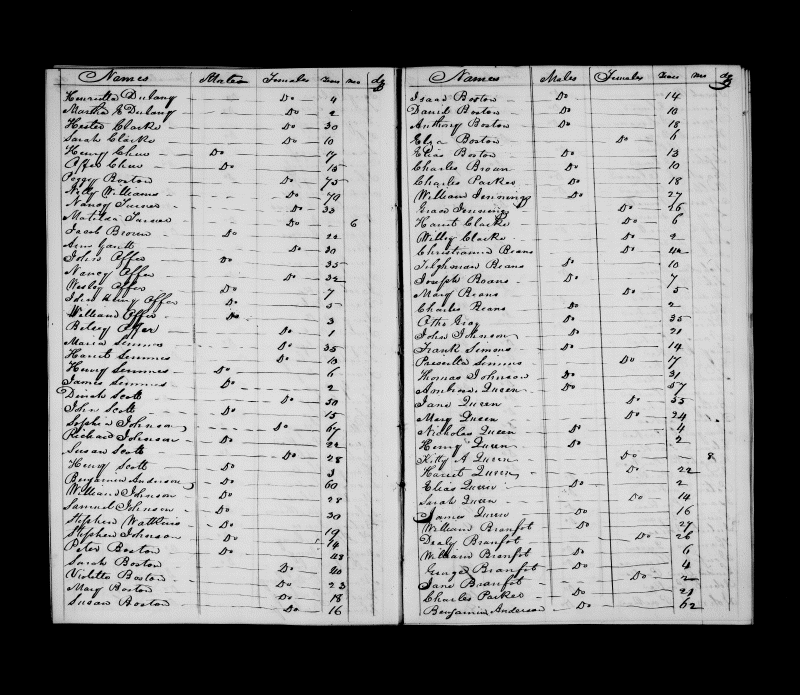 Names Males Females Years mo ds
Henrietta Dulany Do 4
Martha E Dulany Do 2
Hester Clarke Do 30
Sarah Clarke Do 10
Henry Chew Do 17
Affee Chew Do 15
Peggy Boston Do 75
Nelly Williams Do 70
Nancy Turner Do 33
Matilda Turner Do 6
Jacob Brown Do 22
Ann Gantt Do 30
John Offer Do 35
Nancy Offer Do 32
Wesley Offer Do 7
John Henry Offer Do 5
William Offer Do 3
Betsey Offer Do 1
Maria Semmes Do 35
Hariet Semmes Do 13
Henry Semmes Do 6
James Semmes Do 2
Dinah Scott Do 50
John Scott Do 15
Sophia Johnson Do 67
Richard Johnson Do 22
Susan Scott Do 28
Henry Scott Do 3
Benjamin Anderson Do 60
William Johnson Do 28
Samuel Johnson Do 30
Stephen Watkins Do 19
Stephen Johnson Do 14
Peter Boston Do 48
Sarah Boston Do 40
Violetta Boston Do 23
Mary Boston Do 18
Susan Boston Do 16
Names Males Females Years mo ds
Isaac Boston Do 14
David Boston Do 10
Anthony Boston Do 18
Eliza Boston Do 6
Elias Boston Do 13
Charles Brown Do 10
Charles Parker Do 18
William Jennings Do 27
Grace Jennings Do 26
Hariet Clarke Do 6
Willey Clarke Do 2
Christianna Beans Do 42
Tilghman Beans Do 10
Joseph Beans Do 7
Mary Beans Do 5
Charles Beans Do 2
Otho Gray Do 35
John Johnson Do 21
Frank Simons Do 14
Prescilla Semmes Do 17
Thomas Johnson Do 31
Ambrose Queen Do 57
Jane Queen Do 35
Mary Queen Do 24
Nicholas Queen Do 4
Henry Queen Do 2
Kitty A Queen Do 8
Hariet Queen Do 22
Elias Queen Do 2
Sarah Queen Do 14
James Queen Do 16
William Branfot Do 27
Dealy Branfot Do 26
William Branfot Do 6
George Branfot Do 4
Jane Branfot Do 2
Charles Parker Do 21
Benjamin Anderson Do 62